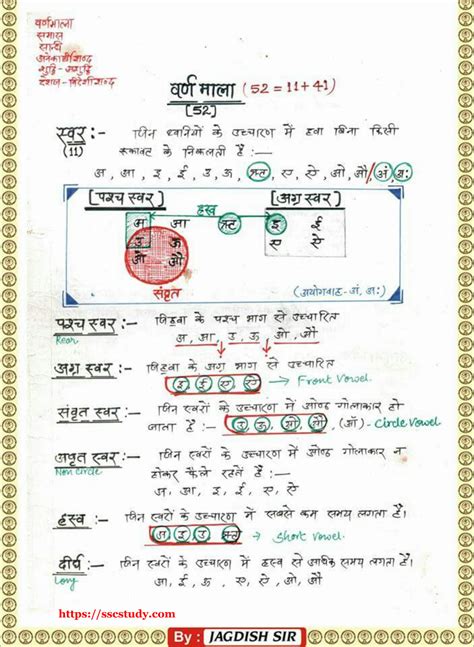 वर्णमाला
समास
सन्धि
अनेकार्थीशब्द
शुद्धि - अशुद्धि
देशज - विदेशीशब्द
वर्ण माला (52 = 11 + 41)
[52]
स्वर :- जिन ध्वनियों के उच्चारण में हवा बिना किसी
(11) रूकावट के निकलती है :-
अ, आ, इ, ई, उ, ऊ, ऋ, ए, ऐ, ओ, औ / अं, अः
[पश्च स्वर] ह्रस्व [अग्र स्वर]
अ आ ऋ इ ई
उ ऊ ए ऐ
ओ औ
संवृत (अयोगवाह - अं, अः)
पश्च स्वर :- जिहवा के पश्च भाग से उच्चारित
Rear अ, आ, उ, ऊ, ओ, औ
अग्र स्वर :- जिहवा के अग्र भाग से उच्चारित
इ ई ए ऐ → Front Vowel.
संवृत स्वर :- जिन स्वरों के उच्चारण में ओष्ठ गोलाकार हो
जाता है :- उ, ऊ, ओ, औ, (ऑ) - Circle Vowel
अवृत स्वर :- जिन स्वरों के उच्चारण में ओष्ठ गोलाकार न
Non Circle होकर फैले रहते हैं :-
अ, आ, इ, ई, ए, ऐ
ह्रस्व :- जिन स्वरों के उच्चारण में सबसे कम समय लगता है।
अ, इ, उ, ऋ → Short Vowel.
दीर्घ :- जिन स्वरों के उच्चारण में ह्रस्व से अधिक समय लगता है।
Long आ, ई, ऊ, ए, ऐ, ओ, औ
https://sscstudy.com
By : JAGDISH SIR